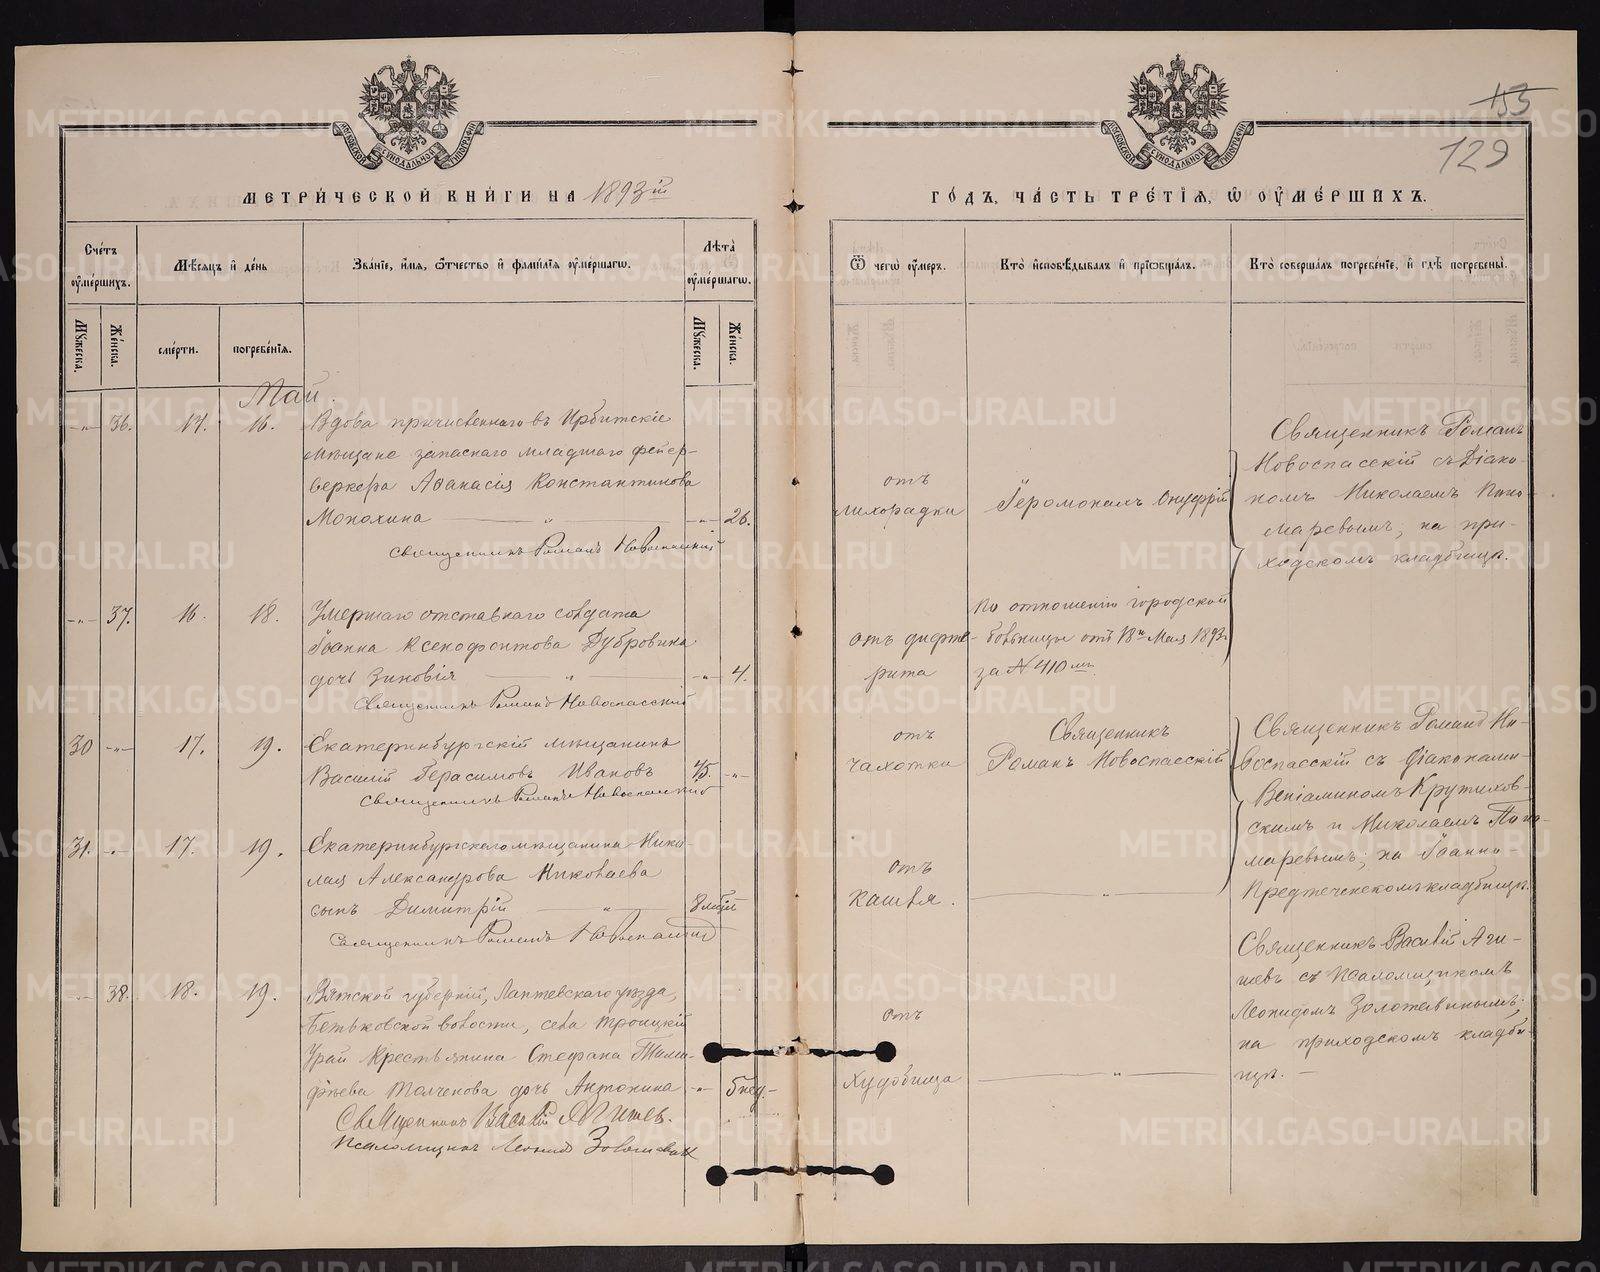 МОСКОВСКОЙ СѴНОДАЛЬНОЙ ТИПОГРАФІИ
МОСКОВСКОЙ СѴНОДАЛЬНОЙ ТИПОГРАФІИ
153
129
МЕТРИЧЕСКОЙ КНИГИ НА 1893й
ГОДЪ, ЧАСТЬ ТРЕТІѦ, Ѡ ОУМЕРШИХЪ.
Счетъ оумершихъ.
Мѣсяцъ и день
Званіе, имя, отчество и фамилія оумершагѡ.
Лѣта оумершагѡ.
Ѿ чегѡ оумеръ.
Кто исповѣдывалъ и пріѡбщалъ.
Кто совершалъ погребеніе, и гдѣ погребены.
Мужеска.
Женска.
смерти.
погребенія.
Мужеска.
Женска.
Май.
-„- 36. 14. 16. Вдова причисленнаго въ Ирбитскіе
мѣщане запаснаго младшаго фейер-
веркера Аѳанасія Константинова
Мопохина -„- 26.
Священникъ Романъ Новоспасскій
отъ
лихорадки
Іеромонахъ Онуфрій
Священникъ Романъ
Новоспасскій съ Діако-
номъ Николаемъ Поно-
маревымъ; на при-
ходскомъ кладбищѣ.
-„- 37. 16. 18. Умершаго отставнаго солдата
Іоанна Ксенофонтова Дубровина
дочь Зиновія -„- 4.
Священникъ Романъ Новоспасскій
отъ дифте-
рита
По отношенію городской
больницы отъ 18го Мая 1893 г.
за № 410мъ
30 -„- 17. 19. Екатеринбургскій мѣщанинъ
Василій Герасимовъ Ивановъ 45. -„-
Священникъ Романъ Новоспасскій
отъ
чахотки
Священникъ
Романъ Новоспасскій
Священникъ Романъ Но-
воспасскій съ Діаконами
Веніаминомъ Крутихов-
скимъ и Николаемъ Поно-
маревымъ; на Іоанно-
Предтеченскомъ кладбищѣ.
31. 17. 19. Екатеринбургскаго мѣщанина Нико-
лая Александрова Николаева
сынъ Димитрій 8 мѣс
Священникъ Романъ Новоспасскій
отъ
кашля.
-„- 38. 18. 19. Вятской губерніи, Лаптевскаго уѣзда,
Бетьковской волости, села Троицкій
Урай крестьянина Стефана Тимо-
фѣева Толченова дочь Антонина -„- 6 нед.
Священникъ Василій Агишевъ.
Псаломщикъ Леонидъ Золотавинъ
Отъ
Худобища
Священникъ Василій Аги-
шевъ съ Псаломщикомъ
Леонидомъ Золотавинымъ;
на приходскомъ кладби-
щѣ.
METRIKI.GASO-URAL.RU